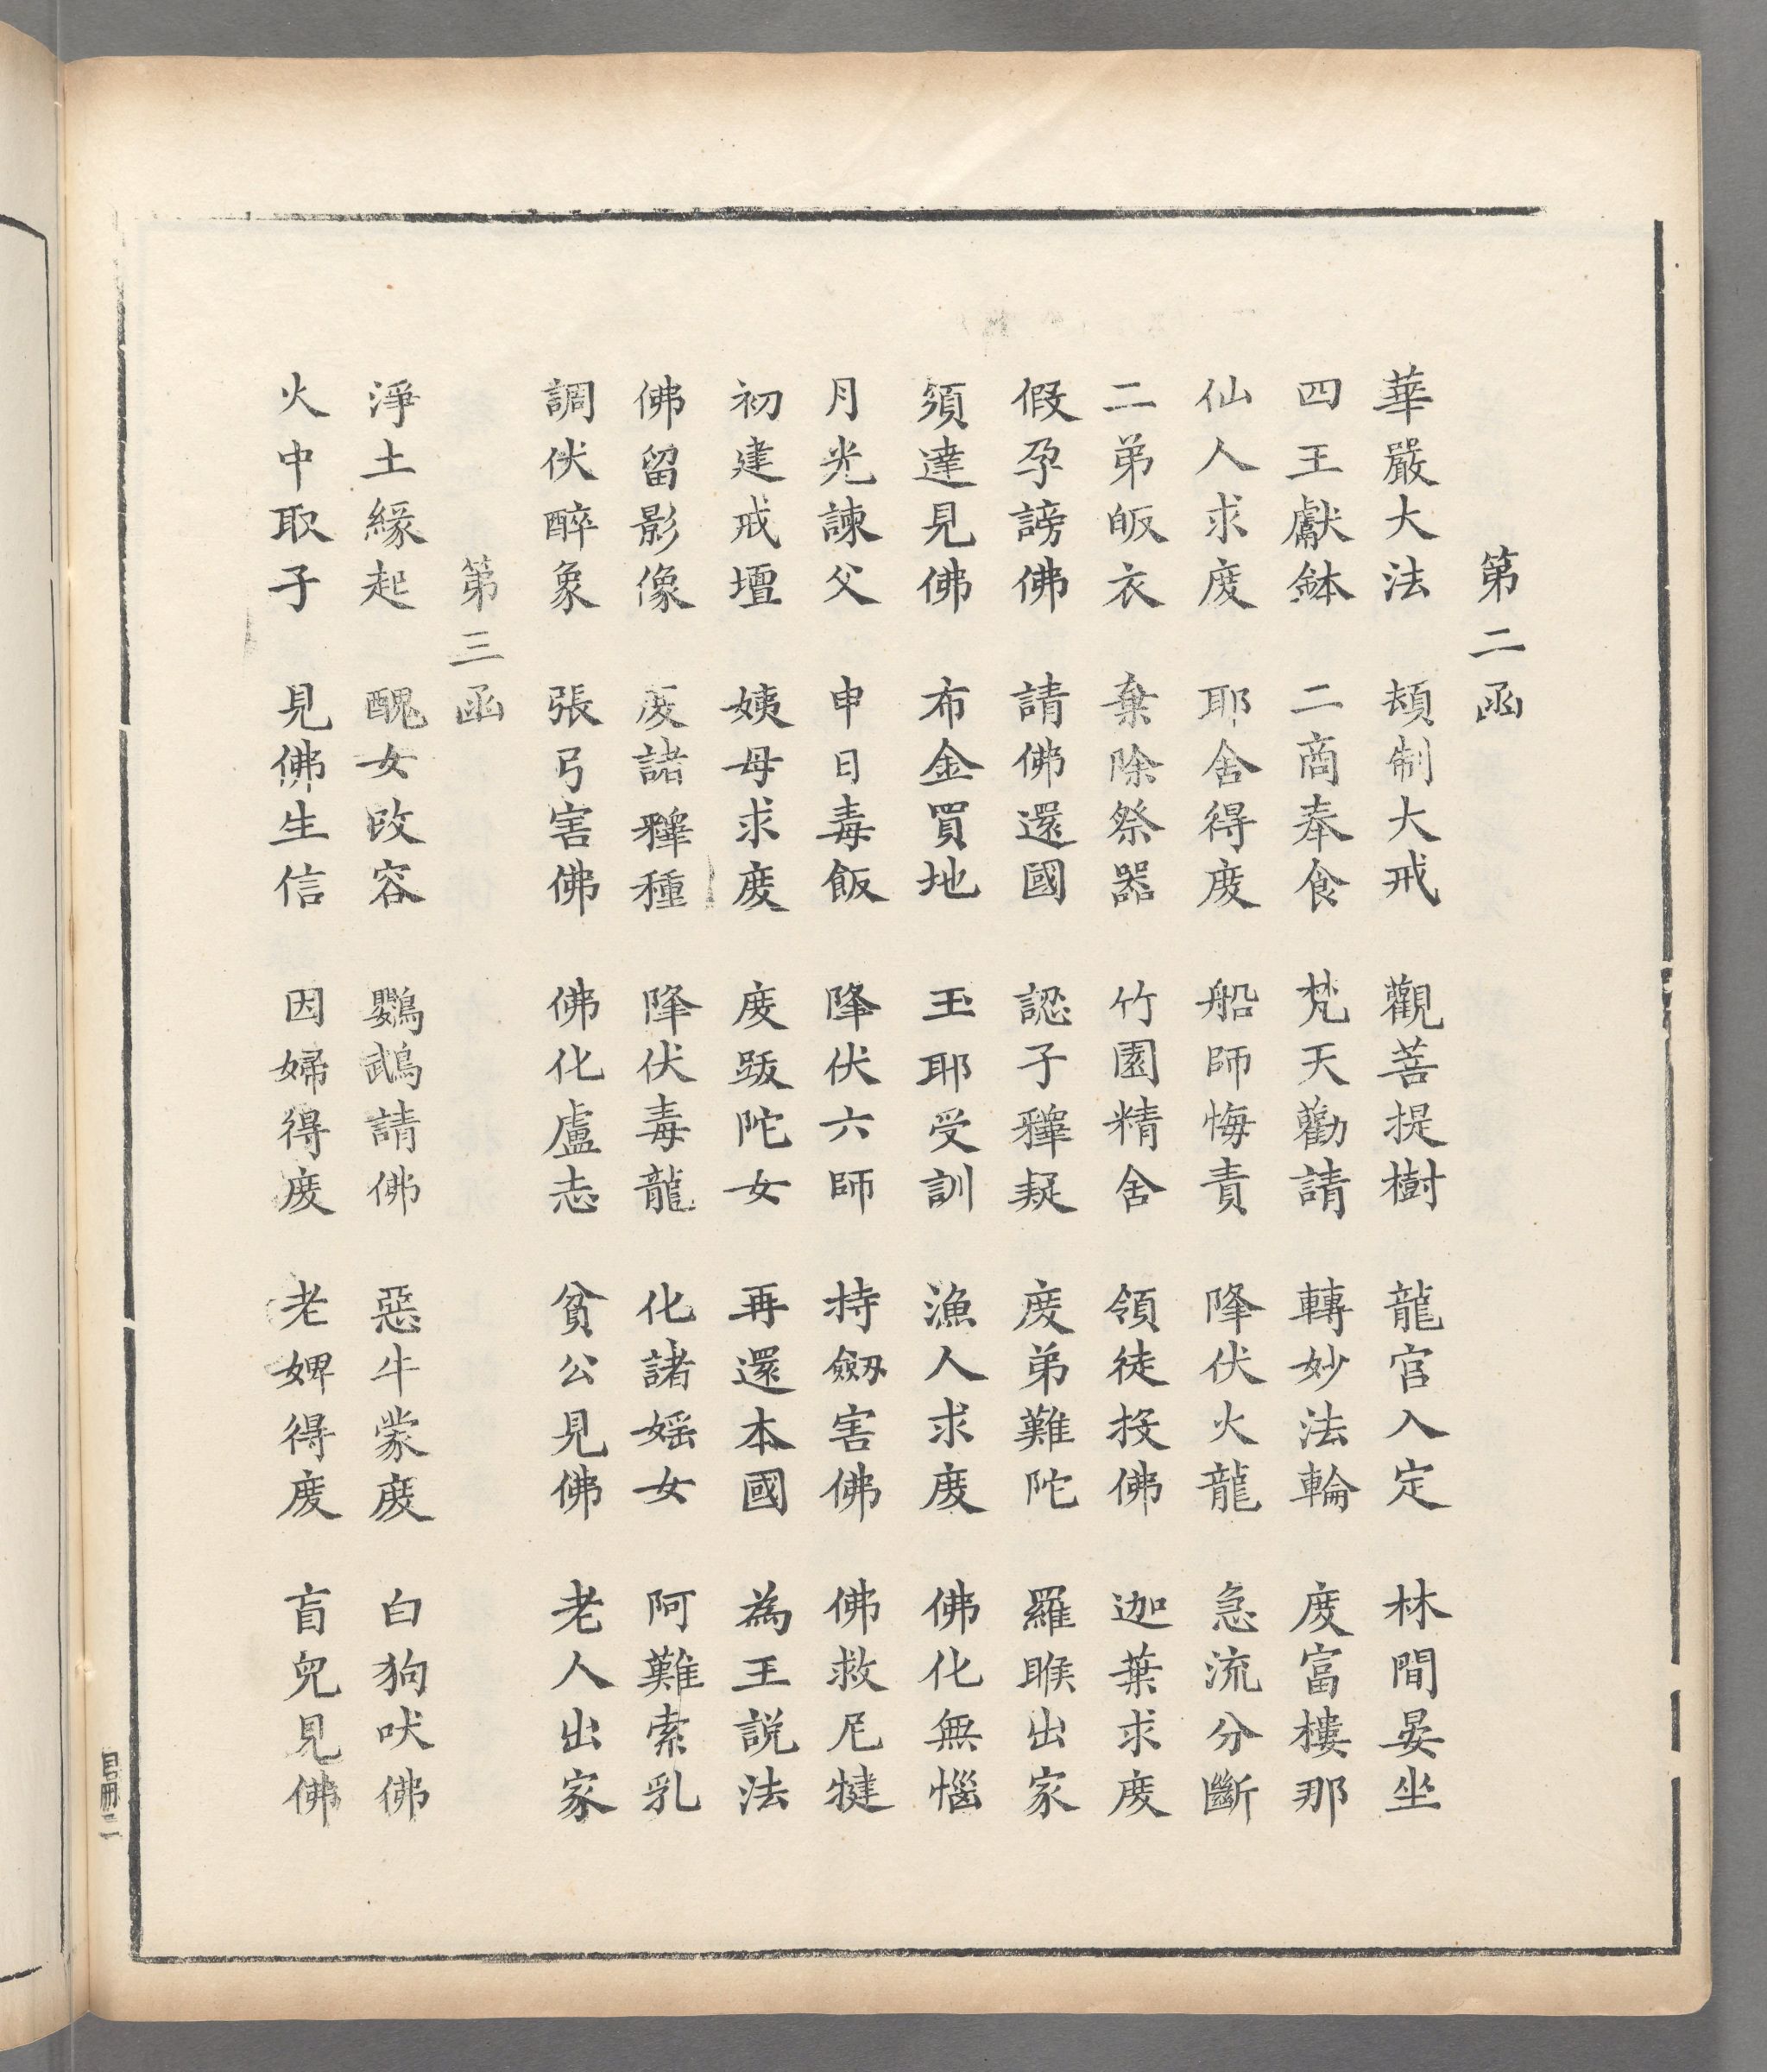 第二函
華嚴大法 頓制大戒 觀菩提樹 龍宮入定 林間晏坐
四王獻鉢 二商奉食 梵天勸請 轉妙法輪 度富樓那
仙人求度 耶舍得度 船師悔責 降伏火龍 急流分斷
二弟皈衣 棄除祭器 竹園精舍 領徒投佛 迦葉求度
假孕謗佛 請佛還國 認子釋疑 度弟難陀 羅睺出家
須達見佛 布金買地 玉耶受訓 漁人求度 佛化無惱
月光諫父 申日毒飯 降伏六師 持劔害佛 佛救尼犍
初建戒壇 姨母求度 度跋陀女 再還本國 為王說法
佛留影像 度諸釋種 降伏毒龍 化諸婬女 阿難索乳
調伏醉象 張弓害佛 佛化盧志 貧公見佛 老人出家
第三函
淨土緣起 醜女改容 鸚鵡請佛 惡牛蒙度 白狗吠佛
火中取子 見佛生信 因婦得度 老婢得度 盲兒見佛